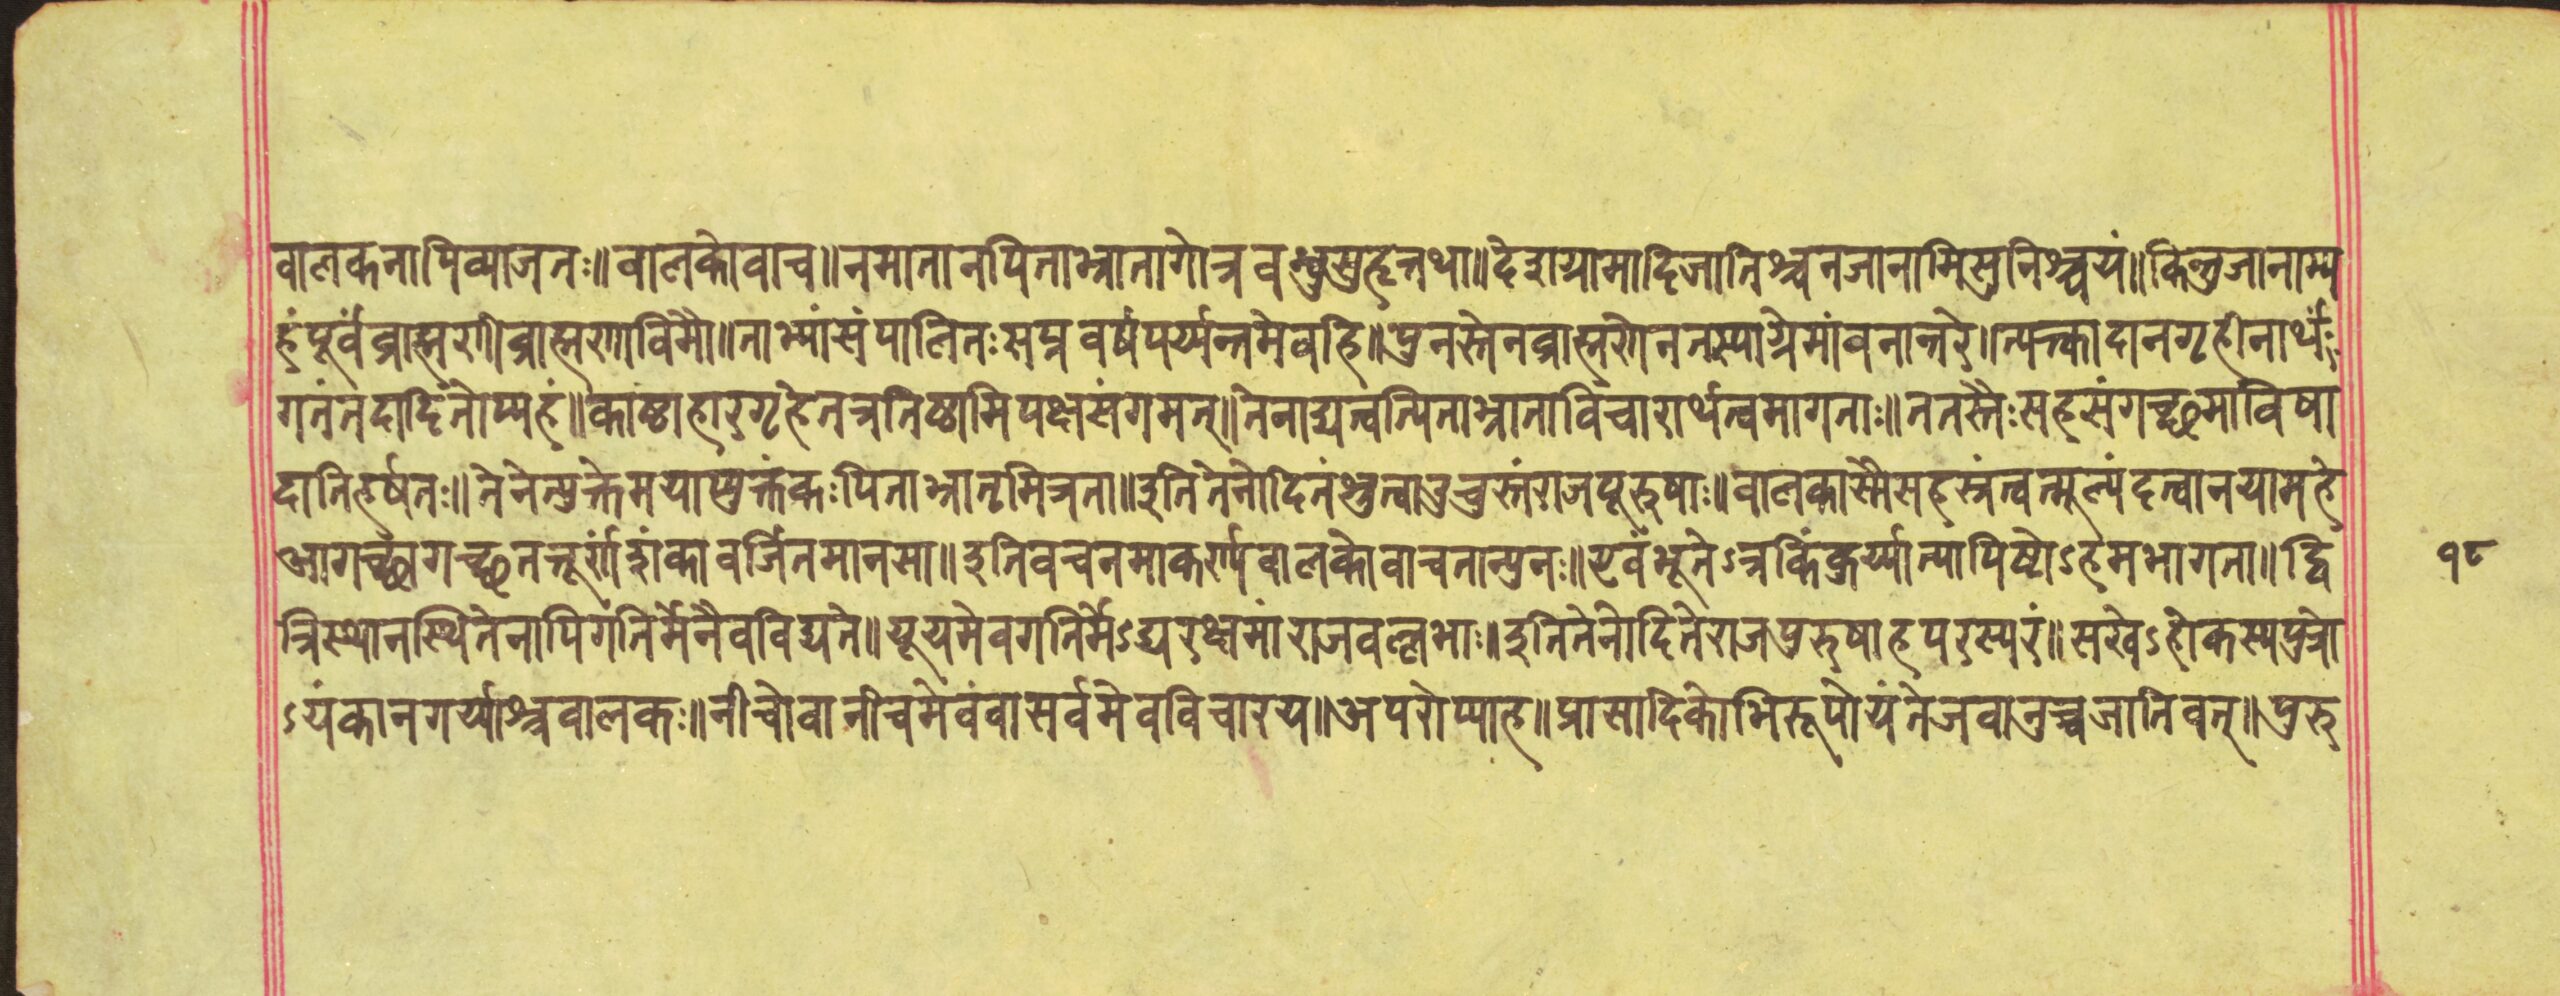 वालकनापिव्याजतः॥वालकोवाच॥नमातानपिताभ्रातागोत्रवन्धुसुहृत्तथा॥देशग्रामादिजातिश्चनजानामिसुनिश्चयं॥किन्तुजानाम्य
हंपूर्वंब्राह्मणीब्राह्मणाविमौ॥ताभ्यांसंपालितःसप्तवर्षंपर्य्यन्तमेवहि॥पुनस्तेनब्राह्मणेनतस्याग्रेमांवनान्तरे॥त्यक्तादानगृहीतार्थं
गतंतदादितोप्यहं॥काष्ठाहारगृहेतत्रतिष्ठामिपक्षसंगमत्॥तेनाद्यत्वत्पिताभ्राताविचारार्थत्वमागताः॥ततस्तैःसहसंगच्छमाविषा
दातिहर्षतः॥तेनेत्युक्तेमयाप्युक्तंकःपिताभ्रातृमित्रता॥इतितेनोदितंश्रुत्वाउचुस्तंराजपूरुषाः॥वालकास्मैसहस्रंत्वन्मूल्यंदत्वानयामहे
आगच्छागच्छतत्तूर्णंशंकावर्जितमानसा॥इतिवचनमाकर्ण्यवालकोवाचतान्पुनः॥एवंभूतेऽत्रकिंकुर्य्यात्पापिष्टोऽहमभागता॥द्वि
त्रिस्थानस्थितेनापिगतिर्मेनैवविद्यते॥यूयमेवगतिर्मेऽद्यरक्षमांराजवल्लभाः॥इतितेनोदितेराजपुरुषाहपरस्परं॥सखेऽहोकस्यपुत्रो
ऽयंकानगर्य्याश्चवालकः॥नीचोवानीचमेवंवासर्वमेवविचारय॥अपरोप्याह॥प्रासादिकोभिरूपोयंतेजवानुच्चजातिवत्॥पुरु
१८